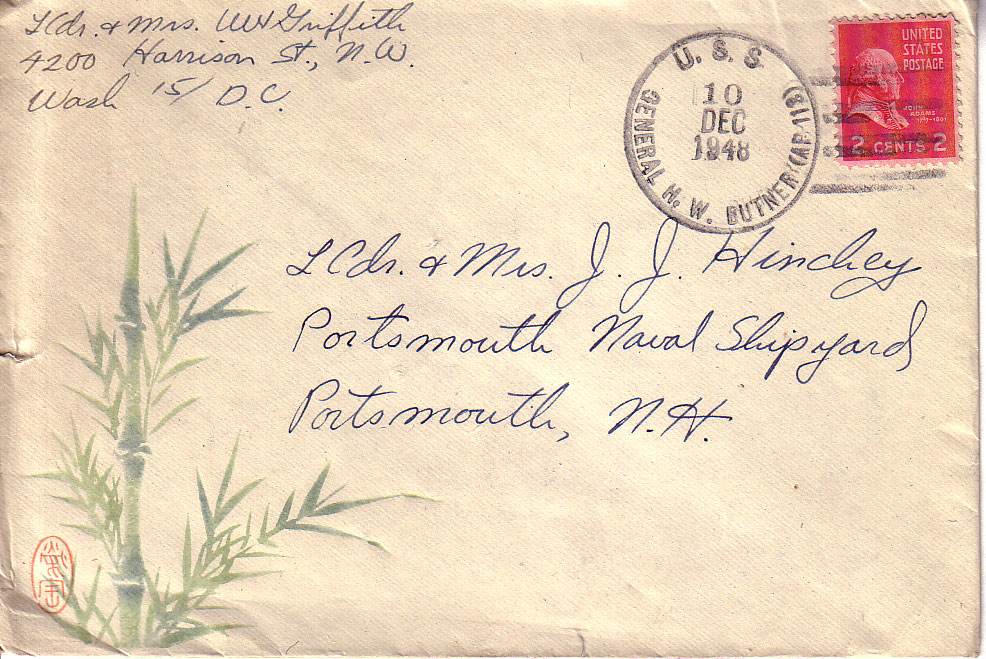 LCdr. & Mrs. WH Griffith
4200 Harrison St., N.W.
Wash 15, D.C.
U. S. S.
GENERAL H. W. BUTNER (AP-113)
10
DEC
1948
UNITED
STATES
POSTAGE
JOHN
ADAMS
1797-1801
2 CENTS 2
LCdr. & Mrs. J. J. Hinchey
Portsmouth Naval Shipyard
Portsmouth, N.H.